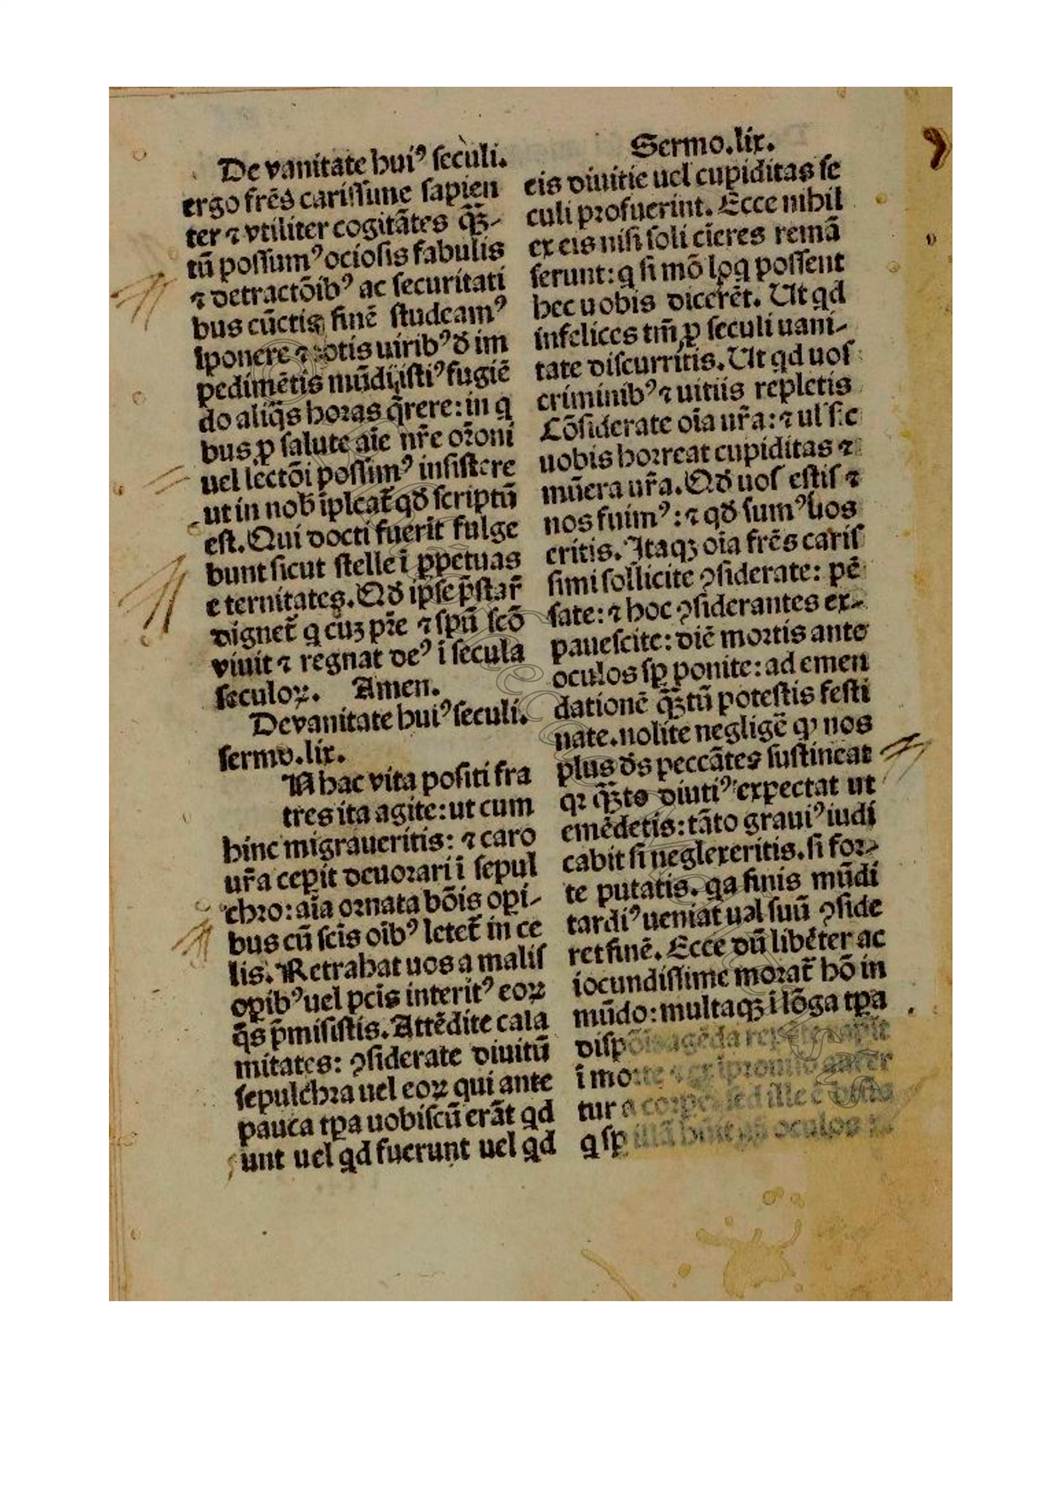 De vanitate huiꝰ seculi.
ergo frēs carissime sapien
ter ⁊ vtiliter cogitātes q̄ꝫ-
tū possumꝰ ociosis fabulis
⁊ detractōibꝰ ac securitati
bus cūctis finē studeamꝰ
īponere ⁊ totis uiribꝰ đ im
pedimētis mūdi istiꝰ fugiē
do aliq̄s horas q̄rere: in q
bus ꝓ salute aīe nr̄e or̄oni
uel lectōi possimꝰ insistere
ut in nob̄ īpleat̄ qđ scriptū
est. Qui docti fuerīt fulge
bunt sicut stelle ī ꝑpetuas
e ternitates. Qđ ip̄se p̄star̄
dignet̄ q cuꝫ pr̄e ⁊ spū scō
viuit ⁊ regnat deꝰ ī secula
seculoꝝ. Amen.
De vanitate huiꝰ seculi.
sermo.lix.
N hac vita positi fra
tres ita agite: ut cum
hinc migraueritis: ⁊ caro
ur̄a ceperit deuorari ī sepul
chro: aīa ornata bōis opi-
bus cū scīs oībꝰ letet̄ in ce
lis. Retrahat uos a malis
opibꝰ uel pcīs interitꝰ eoꝝ
q̄s p̄misistis. Attēdite cala
mitates: ꝯsiderate diuitū
sepulchra uel eoꝝ qui ante
pauca tp̄a uobiscū erāt qd
unt uel qd fuerunt uel qd
Sermo.lix.
eis diuitie uel cupiditas se
culi profuerint. Ecce nihil
ex eis nisi soli cīeres remā
serunt: q si mō loq possent
hec uobis dicerēt. Ut qd
infelices tm̄ ꝓ seculi uani-
tate discurritis. Ut qd uos
criminibꝰ ⁊ uitiis repletis
Cōsiderate oīa ur̄a: ⁊ ul sic
uobis horreat cupiditas ⁊
mūera ur̄a. Qđ uos estis ⁊
nos fuimꝰ: ⁊ qđ sumꝰ uos
eritis. Itaqꝫ oīa frēs caris
simi sollicite ꝯsiderate: pē
sate: ⁊ hoc ꝯsiderantes ex-
pauescite: diē mortis ante
oculos sp̄ ponite: ad emen
dationē q̄ꝫtū potestis festi
nate. nolite negligē ꝙ nos
plus đs peccātes sustineat
qꝛ q̄ꝫto diutiꝰ expectat ut
emēdetis: tāto grauiꝰ iudi
cabit si neglexeritis. si for-
te putatis. qa finis mūdi
tardiꝰ ueniat uel suū ꝯside
ret finē. Ecce dū libēter ac
iocundissime morat̄ hō in
mūdo: multaqꝫ ī lōga tp̄a
disp agēda
ī morte
tur a corpe. sed ille ē
q sp̄ oculos